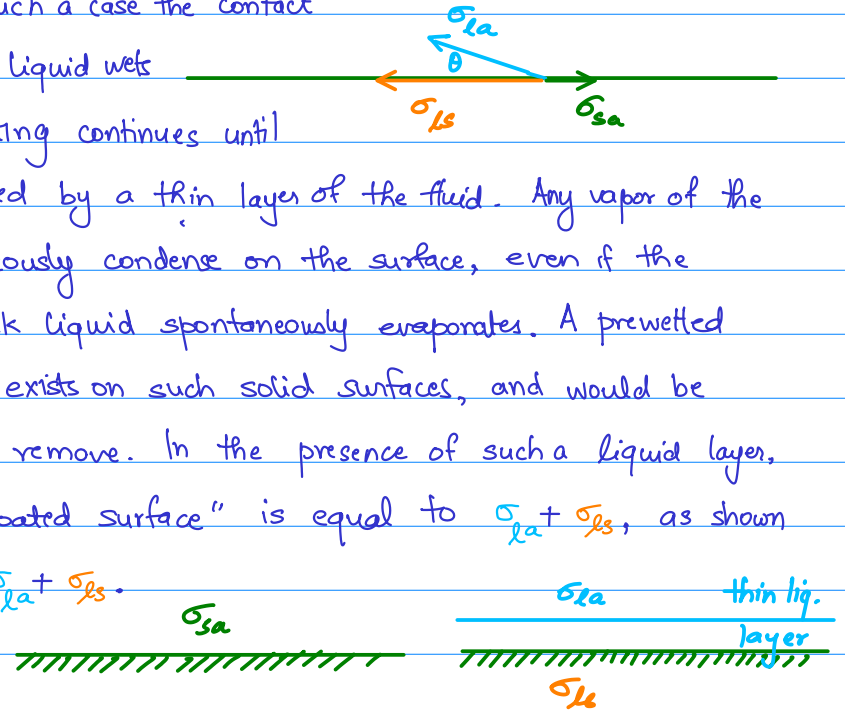 uch a case the contact
σla
liquid wets
θ
σls σsa
ing continues until
ed by a thin layer of the fluid. Any vapor of the
ously condense on the surface, even if the
k liquid spontaneously evaporates. A prewetted
exists on such solid surfaces, and would be
remove. In the presence of such a liquid layer,
oated surface" is equal to σla + σls, as shown
σla + σls.
σsa
σla thin liq.
layer
σls